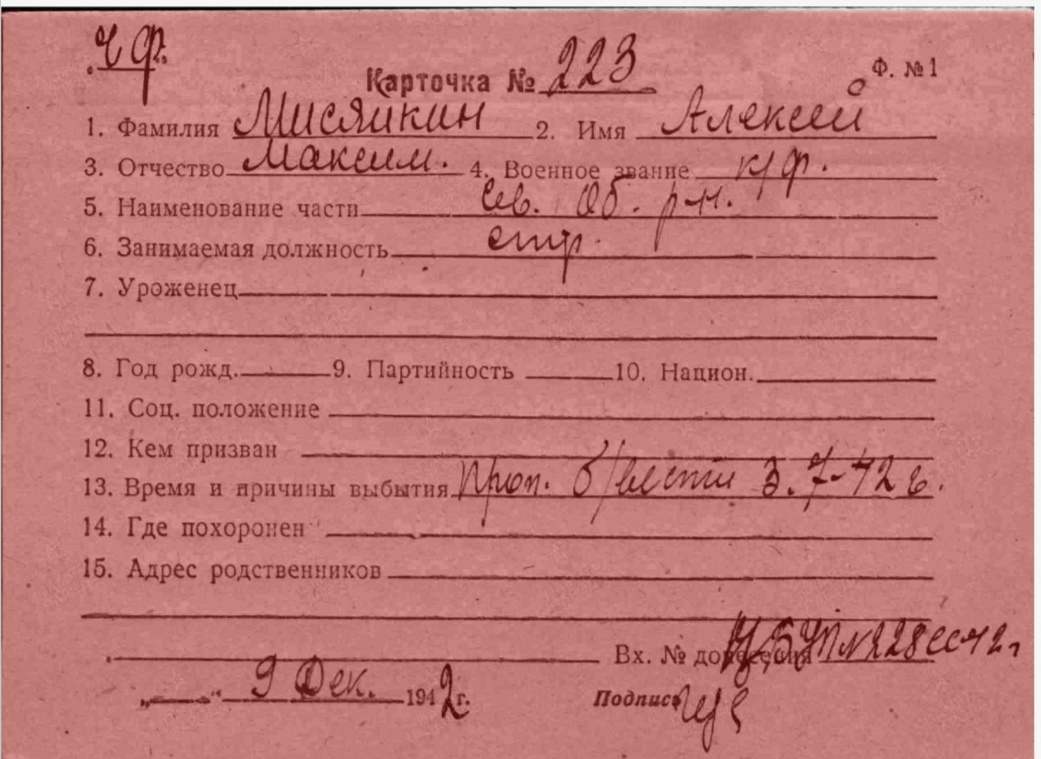 Ч.Ф.
Карточка № 223 Ф. №1
1. Фамилия Мисяйкин 2. Имя Алексей
3. Отчество Максим. 4. Военное звание к/ф.
5. Наименование части Сев. Об. р-н.
6. Занимаемая должность стр.
7. Уроженец
8. Год рожд. 9. Партийность 10. Национ.
11. Соц. положение
12. Кем призван
13. Время и причины выбытия Проп. б/вести 3.7-42 г.
14. Где похоронен
15. Адрес родственников
Вх. № донесения №228сс42г
„ “ 9 Дек. 1942г. Подпись